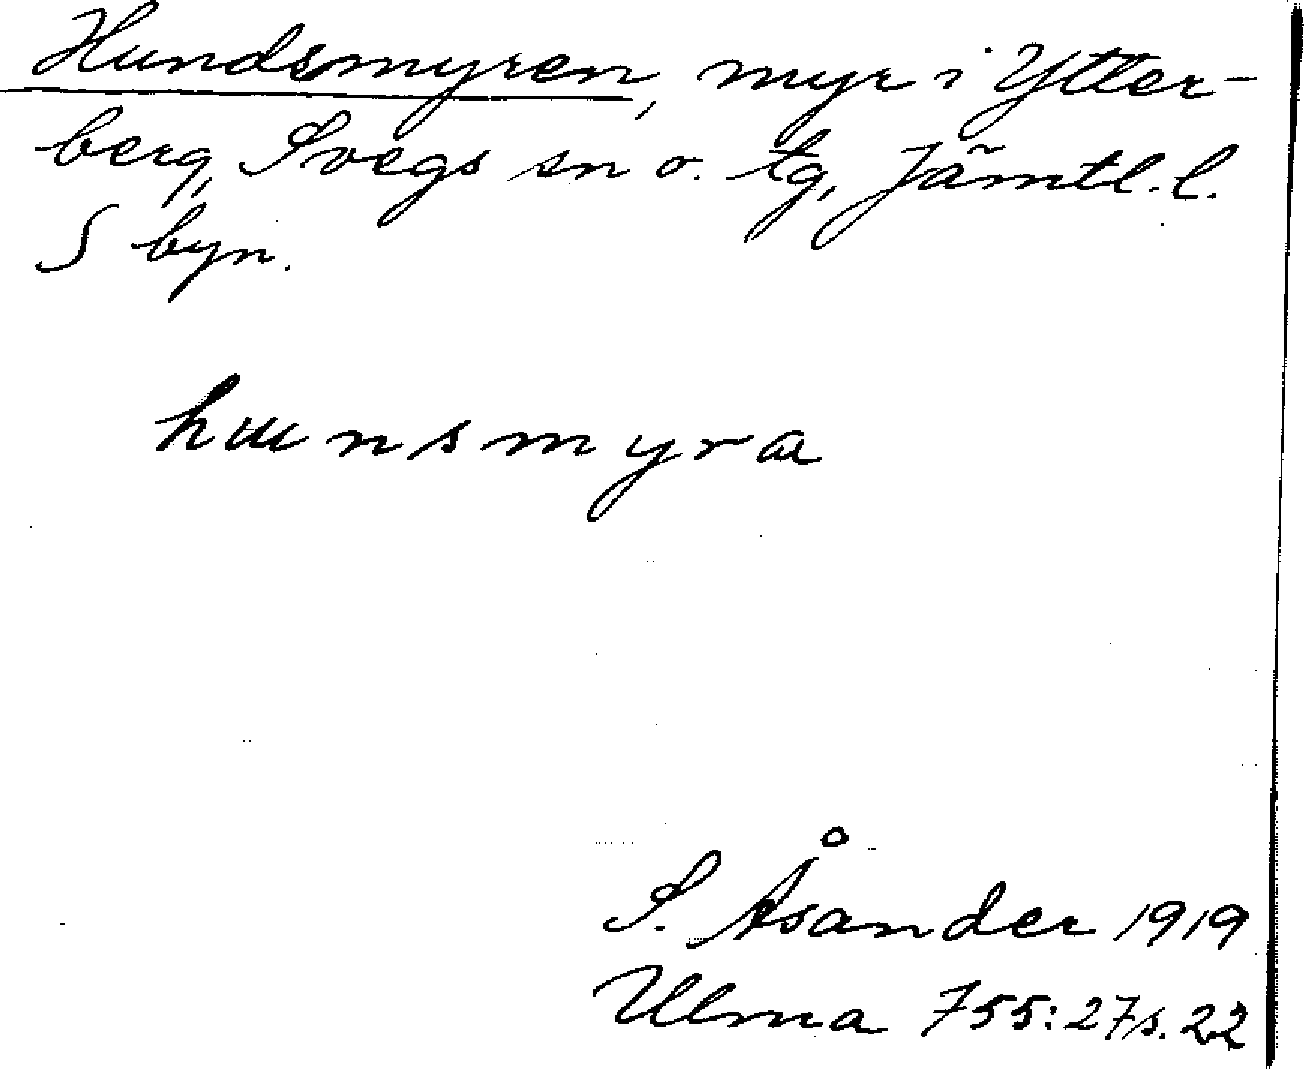 Hundsmyren, myr i Ytter-
berg, Svegs sn o. tg, Jämtl. l.
S byn.
hɯnsmyra
S. Åsander 1919
Ulma 755:27 s. 22